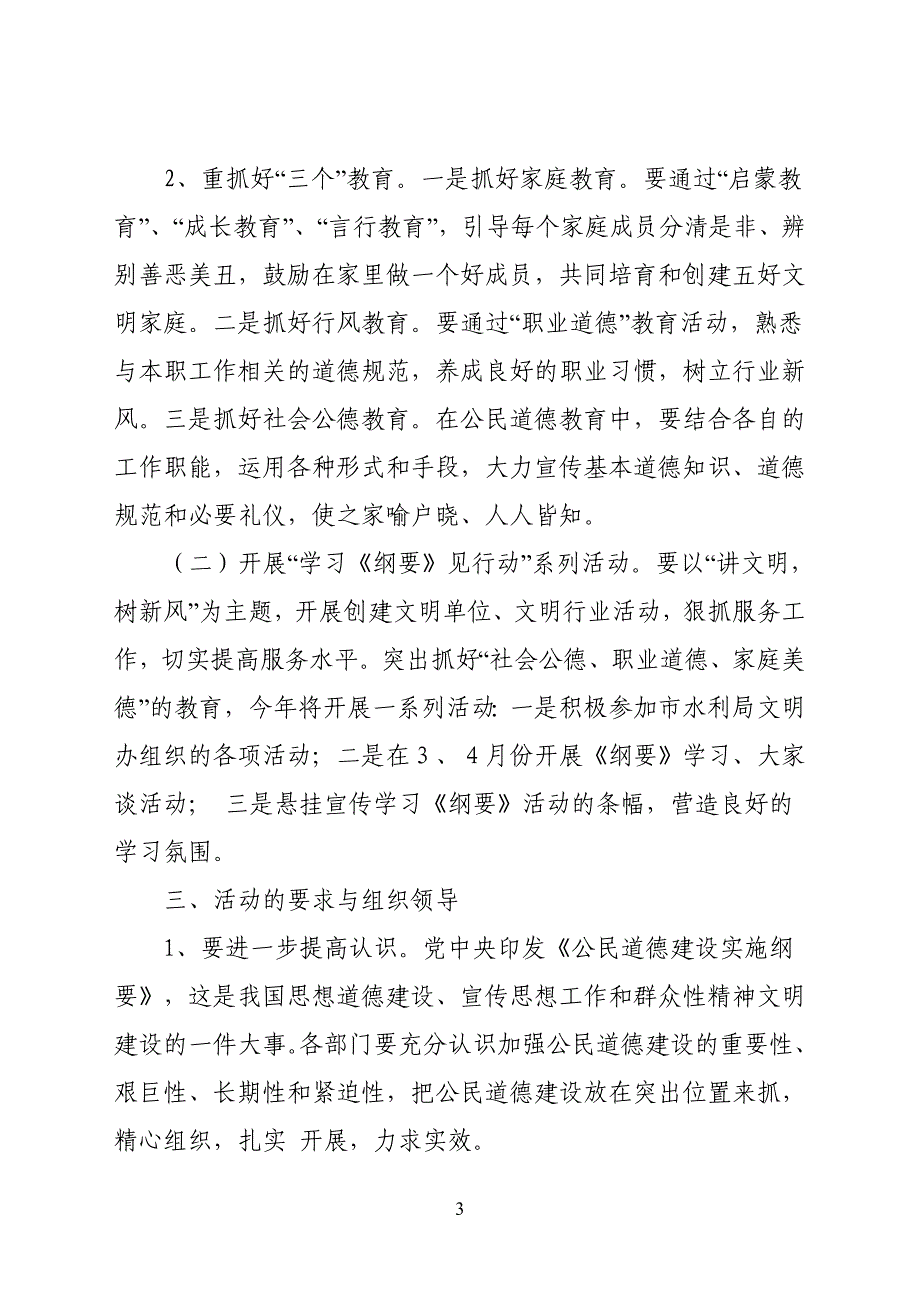 2、重抓好“三个”教育。一是抓好家庭教育。要通过“启蒙教
育”、“成长教育”、“言行教育”，引导每个家庭成员分清是非、辨
别善恶美丑，鼓励在家里做一个好成员，共同培育和创建五好文
明家庭。二是抓好行风教育。要通过“职业道德”教育活动，熟悉
与本职工作相关的道德规范，养成良好的职业习惯，树立行业新
风。三是抓好社会公德教育。在公民道德教育中，要结合各自的
工作职能，运用各种形式和手段，大力宣传基本道德知识、道德
规范和必要礼仪，使之家喻户晓、人人皆知。
（二）开展“学习《纲要》见行动”系列活动。要以“讲文明，
树新风”为主题，开展创建文明单位、文明行业活动，狠抓服务工
作，切实提高服务水平。突出抓好“社会公德、职业道德、家庭美
德”的教育，今年将开展一系列活动：一是积极参加市水利局文明
办组织的各项活动；二是在 3 、 4 月份开展《纲要》学习、大家
谈活动； 三是悬挂宣传学习《纲要》活动的条幅，营造良好的
学习氛围。
三、活动的要求与组织领导
1、要进一步提高认识。党中央印发《公民道德建设实施纲
要》，这是我国思想道德建设、宣传思想工作和群众性精神文明
建设的一件大事。各部门要充分认识加强公民道德建设的重要性、
艰巨性、长期性和紧迫性，把公民道德建设放在突出位置来抓，
精心组织，扎实 开展，力求实效。
3